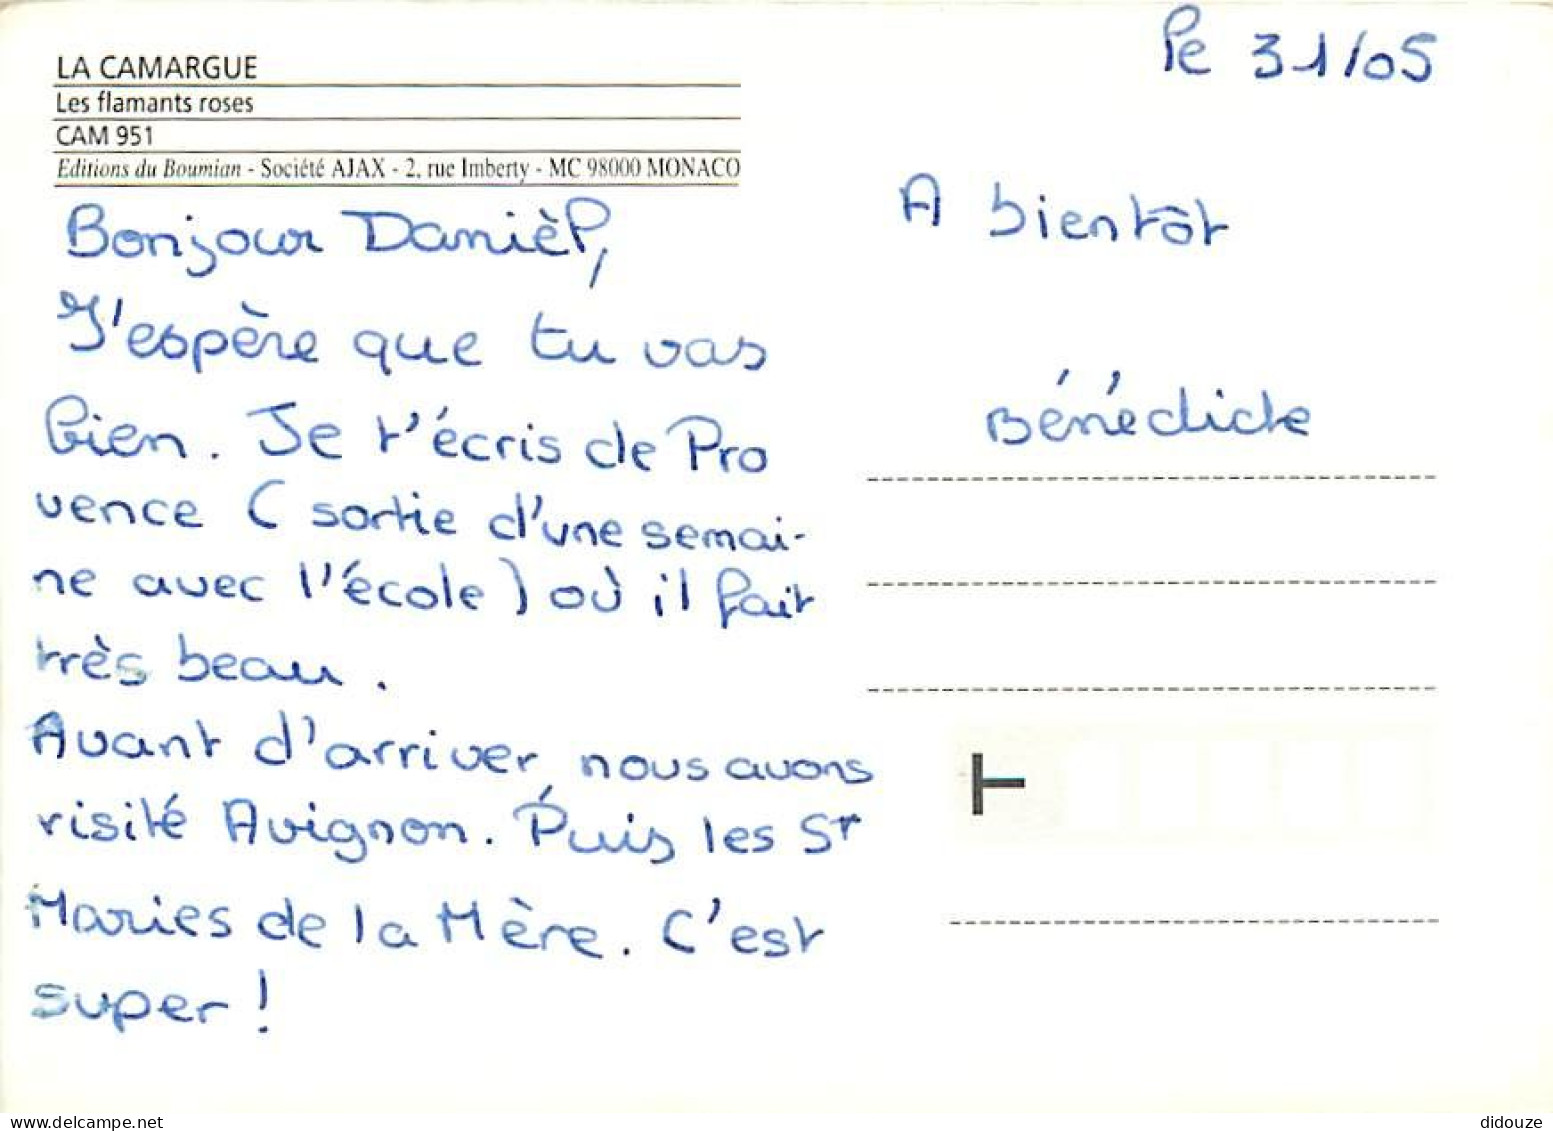 LA CAMARGUE
Les flamants roses
CAM 951
Editions du Boumian - Société AJAX - 2, rue Imberty - MC 98000 MONACO
le 31/05
Bonjour Danièl,
J'espère que tu vas
bien. Je t'écris de Pro
vence ( sortie d'une semai-
ne avec l'école ) où il fait
très beau.
Avant d'arriver, nous avons
visité Avignon. Puis les St
Maries de la Mère. C'est
super !
A bientôt
Bénédicte
www.delcampe.net
didouze